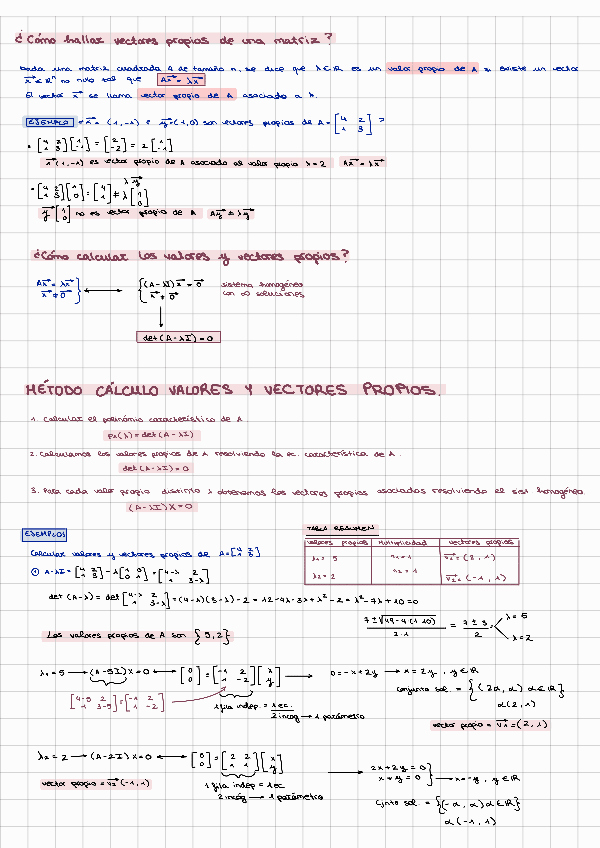 ¿Cómo hallar vectores propios de una matriz?
Dada una matriz cuadrada A de tamaño n, se dice que λ∈ℝ es un valor propio de A si existe un vector
x⃗∈ℝⁿ no nulo tal que Ax⃗ = λx⃗
El vector x⃗ se llama vector propio de A asociado a λ.
EJEMPLO x⃗ = (1,-1) e y⃗=(1,0) son vectores propios de A= [4 2; 1 3] ?
• [4 2; 1 3] [1; -1] = [2; -2] = 2 [1; -1]
x⃗(1,-1) es vector propio de A asociado al valor propio λ=2 Ax⃗=λx⃗
λy⃗
• [4 2; 1 3] [1; 0] = [4; 1] ≠ λ [1; 0]
y⃗ [1; 0] no es vector propio de A Ay⃗≠λy⃗
¿Cómo calcular los valores y vectores propios?
Ax⃗=λx⃗ (A-λI)x⃗=0⃗ sistema homogéneo
x⃗≠0⃗ x⃗≠0⃗ con ∞ soluciones
det(A-λI)=0
MÉTODO CÁLCULO VALORES Y VECTORES PROPIOS.
1. Calcular el polinómio característico de A
p_A(λ)=det(A-λI)
2. Calculamos los valores propios de A resolviendo la ec. característica de A.
det(A-λI)=0
3. Para cada valor propio distinto λ obtenemos los vectores propios asociados resolviendo el sist homogéneo.
(A-λI)X=0
EJEMPLOS
TABLA RESUMEN
valores propios Multiplicidad vectores propios
λ₁=5 n₁=1 v₁⃗=(2,1)
λ₂=2 n₂=1 v₂⃗=(-1,1)
Calcular valores y vectores propios de A=[4 2; 1 3]
① A-λI=[4 2; 1 3]-λ[1 0; 0 1]=[4-λ 2; 1 3-λ]
det(A-λ)=det[4-λ 2; 1 3-λ]=(4-λ)(3-λ)-2=12-4λ-3λ+λ²-2=λ²-7λ+10=0
7±√49-4(1·10) / 2·1 = 7±3 / 2 λ=5 λ=2
Los valores propios de A son {5,2}
λ₁=5 → (A-5I)X=0 ↔ [0; 0]=[-1 2; 1 -2][x; y] → 0=-x+2y → x=2y, y∈ℝ
[4-5 2; 1 3-5]=[-1 2; 1 -2]
1 fila indep = 1 ec.
2 incóg → 1 parámetro
conjunto sol. = {(2α,α) α∈ℝ}
α(2,1)
vector propio = v₁⃗=(2,1)
λ₂=2 → (A-2I)X=0 ↔ [0; 0]=[2 2; 1 1][x; y] → 2x+2y=0
x+y=0 → x=-y, y∈ℝ
vector propio=v₂⃗(-1,1)
1 fila indep = 1ec
2 incóg → 1 parámetro
Cjnto sol. = {(-α,α) α∈ℝ}
α(-1,1)